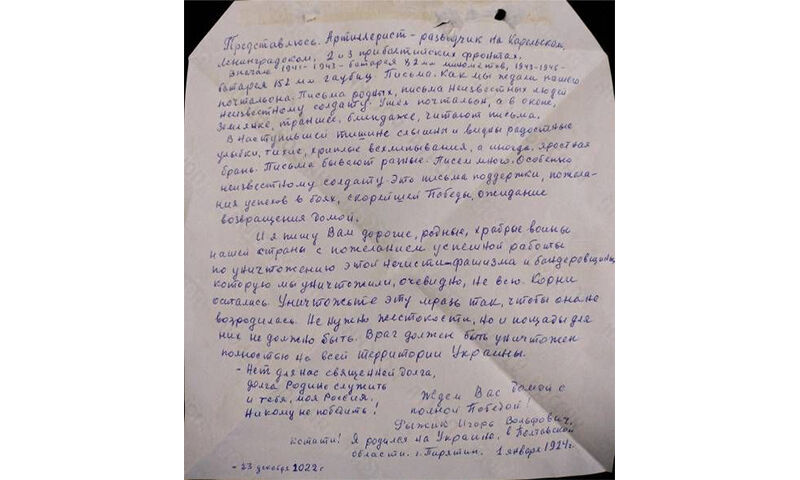 Представлюсь. Артиллерист - разведчик на Карельском,
Ленинградском, 2 и 3 прибалтийских фронтах.
Вначале 1941-1943 - батарея 82 мм миномётов, 1943-1945-
батарея 152 мм гаубиц. Письма. Как мы ждали нашего
почтальона. Письма родных, письма неизвестных людей
неизвестному солдату. Ушёл почтальон, а в окопе,
землянке, траншее, блиндаже, читают письма.
В наступившей тишине слышны и видны радостные
улыбки, тихие, хриплые всхлипывания, а иногда, яростная
брань. Письма бывают разные. Писем много. Особенно
неизвестному солдату. Это письма поддержки, пожела-
ния успехов в боях, скорейшей Победы, ожидание
возвращения домой.
И я пишу Вам дорогие, родные, храбрые воины
нашей страны с пожеланием успешной работы
по уничтожению этой нечисти - фашизма и бандеровщины,
которую мы уничтожили, очевидно, не всю. Корни
остались. Уничтожьте эту мразь так, чтобы она не
возродилась. Не нужно жестокости, но и пощады для
них не должно быть. Враг должен быть уничтожен
полностью на всей территории Украины.
- Нет для нас священней долга,
долга Родине служить
и тебя, моя Россия,
Никому не победить!
Ждем Вас домой с
полной Победой!
Рыжик Игорь Вольфович.
кстати! Я родился на Украине, в Полтавской
области. г. Пирятин. 1 января 1924г.
- 23 декабря 2022 г